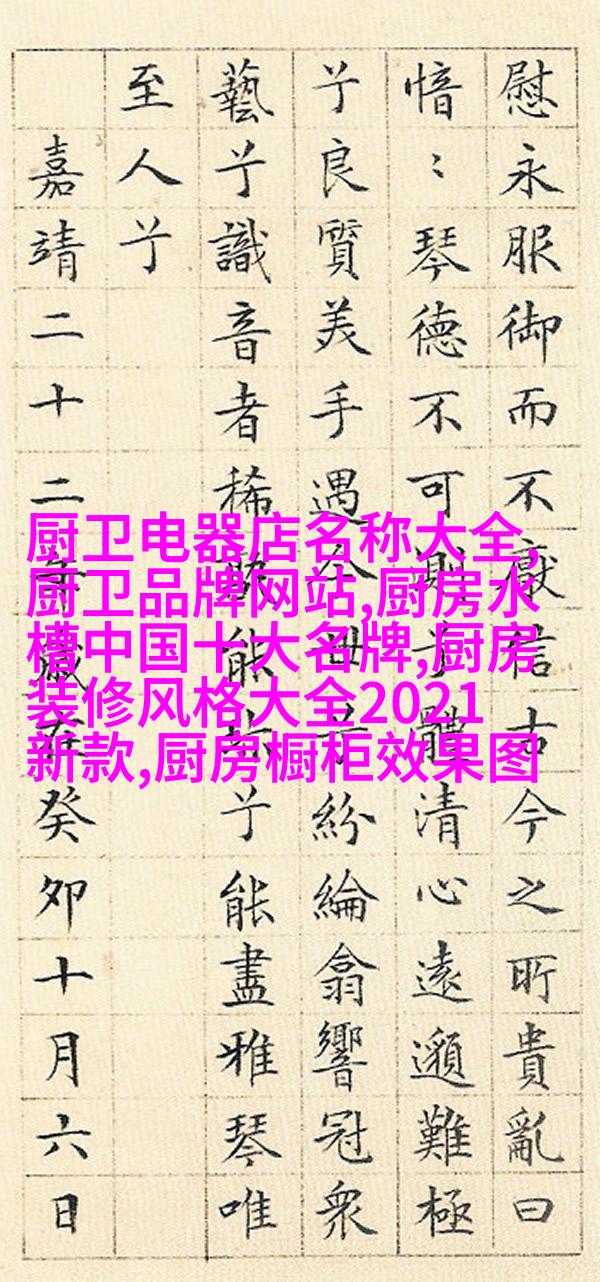 慰永服御而不厭信古今之所貴亂曰
愔〻琴德不可測兮體清心遠邈難極
兮良質美手遇今世兮紛綸翕響冠衆
藝兮識音者稀孰能珎兮能盡雅琴唯
至人兮
嘉靖二十二年歲在癸夘十月六日
厨卫电器店名称大全,
厨卫品牌网站,厨房水
槽中国十大名牌,厨房
装修风格大全2021
新款,厨房橱柜效果图